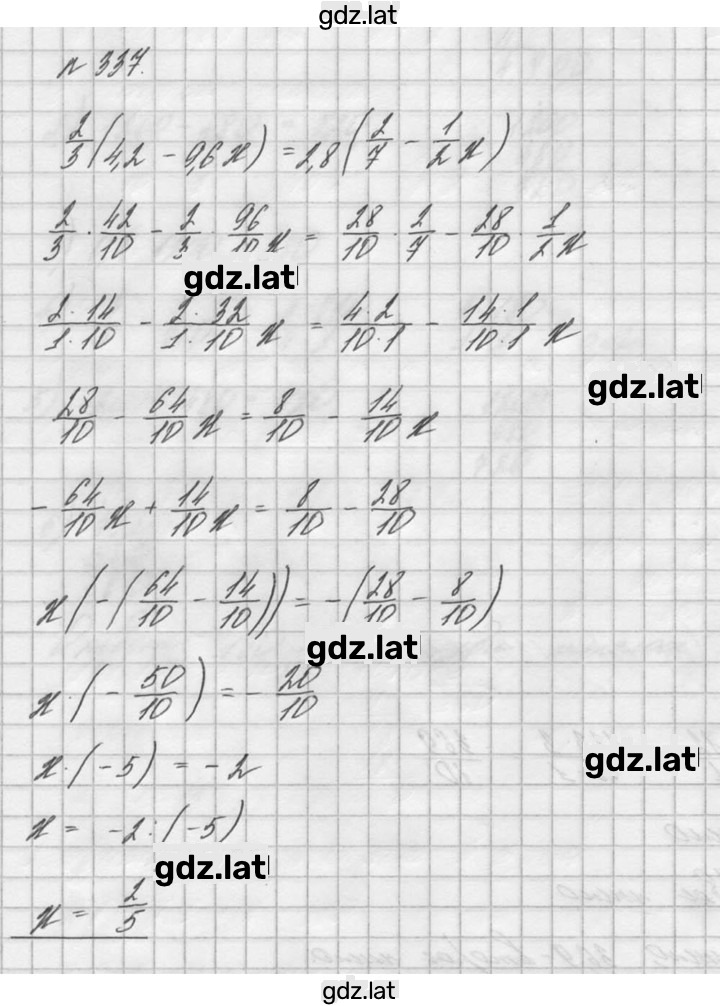 gdz.lat
№ 337.
2/3 (4,2 - 9,6x) = 2,8 (2/7 - 1/2 x)
2/3 · 42/10 - 2/3 · 96/10 x = 28/10 · 2/7 - 28/10 · 1/2 x
gdz.lat
2·14/1·10 - 2·32/1·10 x = 4·2/10·1 - 14·1/10·1 x
gdz.lat
28/10 - 64/10 x = 8/10 - 14/10 x
- 64/10 x + 14/10 x = 8/10 - 28/10
x (-(64/10 - 14/10)) = -(28/10 - 8/10)
gdz.lat
x · (- 50/10) = - 20/10
x · (-5) = -2
gdz.lat
x = -2 : (-5)
gdz.lat
x = 2/5
gdz.lat